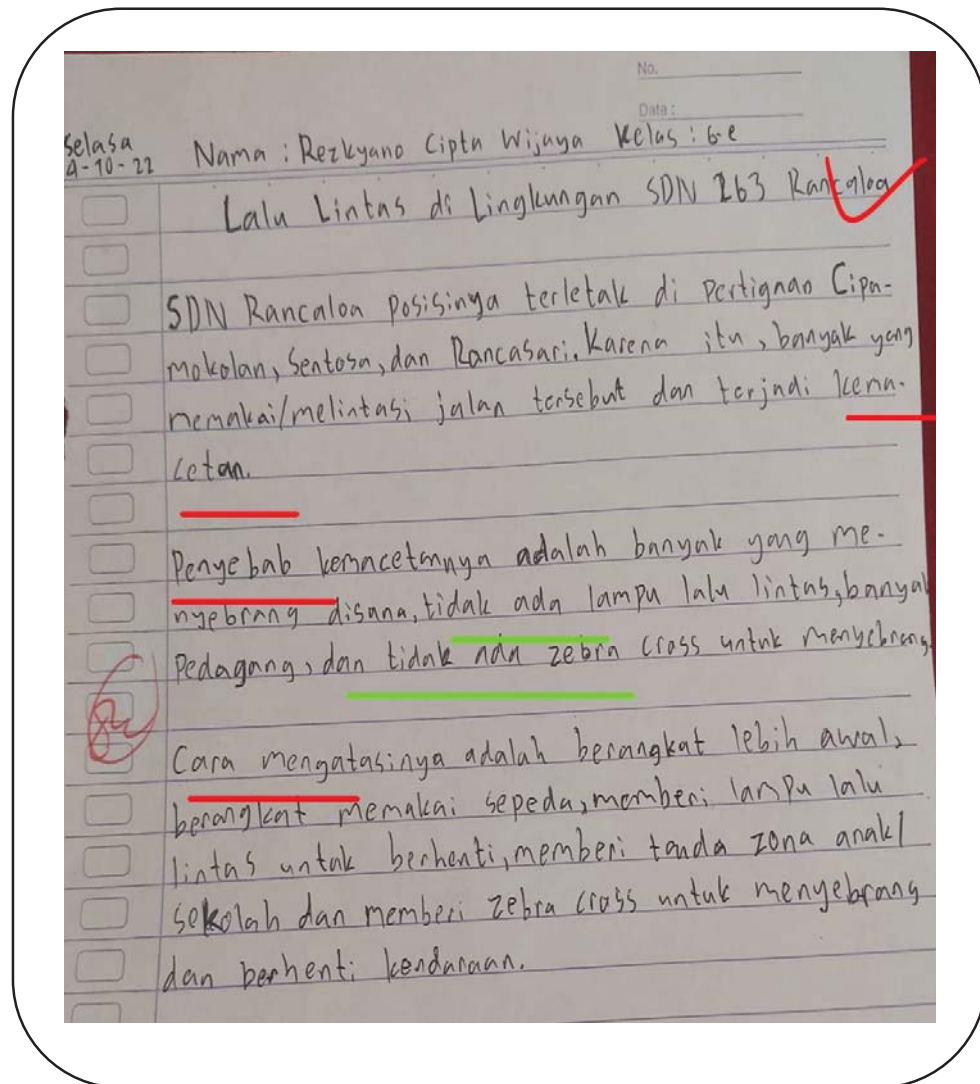 No.
Date :
Selasa
4-10-22
Nama : Rezkyano Cipta Wijaya Kelas : 6-e
Lalu Lintas di Lingkungan SDN 263 Rancaloa
SDN Rancaloa posisinya terletak di Pertignao Cipa-
mokolan, Sentosa, dan Rancasari. Karena itu, banyak yang
memakai/melintasi jalan tersebut dan terjadi kema-
cetan.
Penyebab kemacetannya adalah banyak yang me-
nyebrang disana, tidak ada lampu lalu lintas, banyak
Pedagang, dan tidak ada zebra cross untuk menyebrang.
Cara mengatasinya adalah berangkat lebih awal,
berangkat memakai sepeda, memberi lampu lalu
lintas untuk berhenti, memberi tanda zona anak/
sekolah dan memberi zebra cross untuk menyebrang
dan berhenti kendaraan.